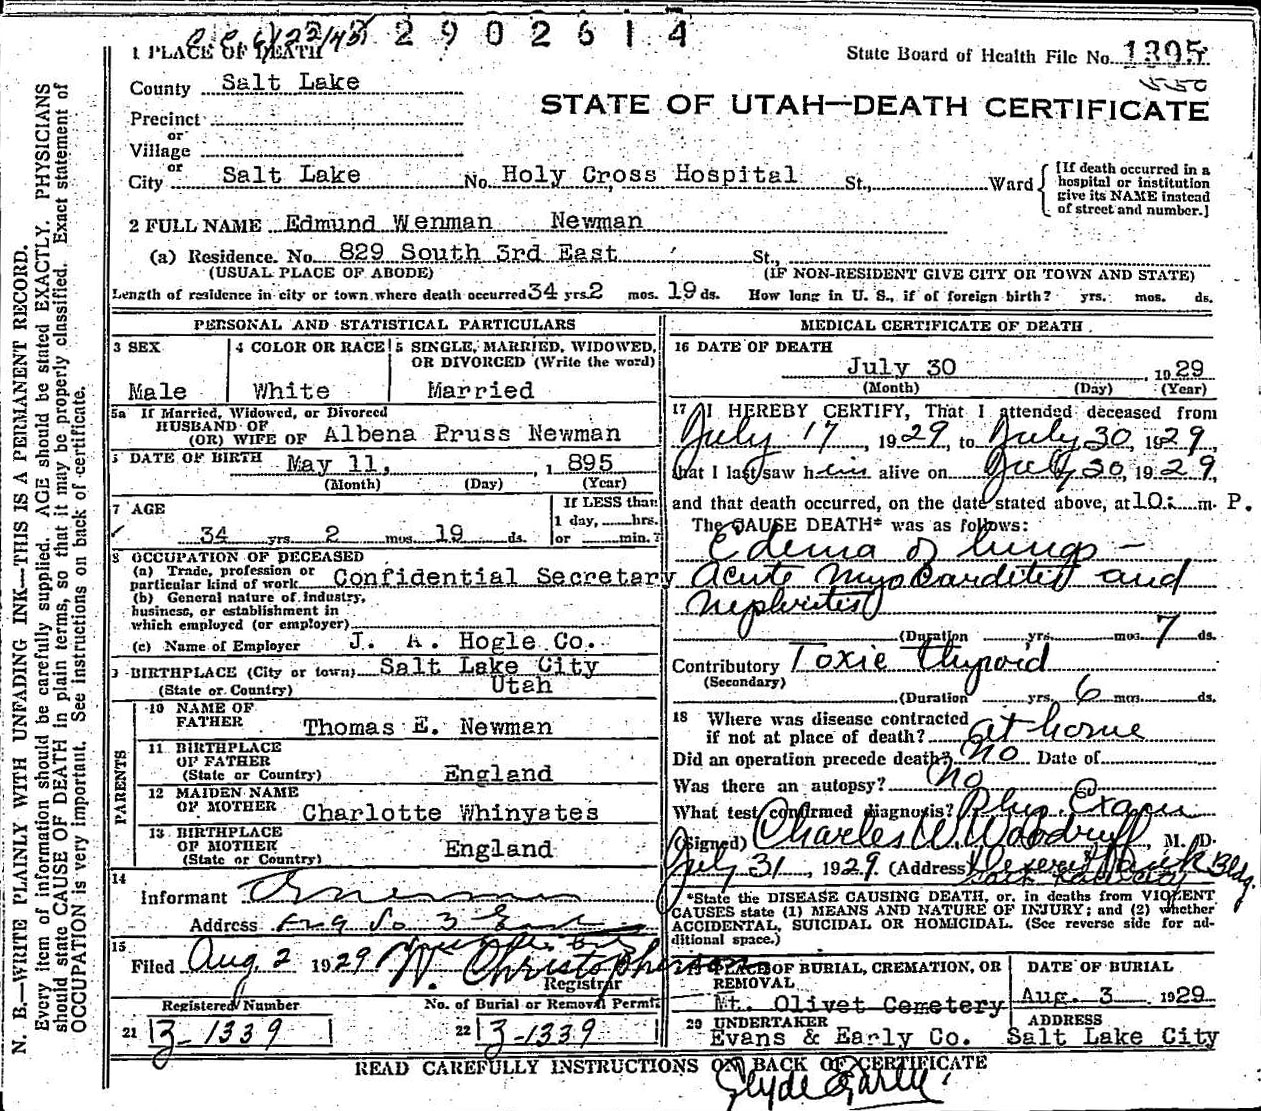 C.C. 6/22/45 2902614
1 PLACE OF DEATH
State Board of Health File No. 1395
550
County Salt Lake
STATE OF UTAH—DEATH CERTIFICATE
Precinct
or
Village
or
City Salt Lake No. Holy Cross Hospital St., Ward
[If death occurred in a
hospital or institution
give its NAME instead
of street and number.]
2 FULL NAME Edmund Wenman Newman
(a) Residence. No. 829 South 3rd East St.,
(USUAL PLACE OF ABODE) (IF NON-RESIDENT GIVE CITY OR TOWN AND STATE)
Length of residence in city or town where death occurred 34 yrs. 2 mos. 19 ds. How long in U. S., if of foreign birth? yrs. mos. ds.
PERSONAL AND STATISTICAL PARTICULARS
3 SEX
Male
4 COLOR OR RACE
White
5 SINGLE, MARRIED, WIDOWED,
OR DIVORCED (Write the word)
Married
5a If Married, Widowed, or Divorced
HUSBAND OF
(OR) WIFE OF Albena Pruss Newman
DATE OF BIRTH May 11, , 1 895
(Month) (Day) (Year)
7 AGE
34 yrs 2 mos 19 ds.
If LESS than
1 day, hrs.
or min.?
8 OCCUPATION OF DECEASED
(a) Trade, profession or
particular kind of work Confidential Secretary
(b) General nature of industry,
business, or establishment in
which employed (or employer)
(c) Name of Employer J. A. Hogle Co.
9 BIRTHPLACE (City or town) Salt Lake City
(State or Country) Utah
PARENTS
10 NAME OF
FATHER Thomas E. Newman
11 BIRTHPLACE
OF FATHER
(State or Country) England
12 MAIDEN NAME
OF MOTHER Charlotte Whinyates
13 BIRTHPLACE
OF MOTHER
(State or Country) England
14
Informant
Address 829 So 3 East
15
Filed Aug. 2 1929 W. Christopherson
Registrar
Registered Number
21 3-1339
No. of Burial or Removal Permit
22 3-1339
MEDICAL CERTIFICATE OF DEATH
16 DATE OF DEATH
July 30 , 1929
(Month) (Day) (Year)
17 I HEREBY CERTIFY, That I attended deceased from
July 17, 1929, to July 30, 1929,
that I last saw him alive on July 30, 1929,
and that death occurred, on the date stated above, at 10: m. P.
The CAUSE DEATH* was as follows:
Edema of lungs —
Acute Myocarditis and
Nephritis
(Duration yrs. mos. 7 ds.
Contributory Toxic Thyroid
(Secondary)
(Duration yrs. 6 mos. ds.
18 Where was disease contracted
if not at place of death? at home
Did an operation precede death? No Date of
Was there an autopsy? No
What test confirmed diagnosis? Phys. Exam
(Signed) Charles W. Woodruff, M. D.
July 31, 1929. (Address) Deseret Bank Bldg.
Salt Lake City
*State the DISEASE CAUSING DEATH, or, in deaths from VIOLENT
CAUSES state (1) MEANS AND NATURE OF INJURY; and (2) whether
ACCIDENTAL, SUICIDAL OR HOMICIDAL. (See reverse side for ad-
ditional space.)
19 PLACE OF BURIAL, CREMATION, OR
REMOVAL
Mt. Olivet Cemetery
DATE OF BURIAL
Aug. 3 1929
20 UNDERTAKER
Evans & Early Co.
ADDRESS
Salt Lake City
READ CAREFULLY INSTRUCTIONS ON BACK OF CERTIFICATE
Clyde Early
N. B.—WRITE PLAINLY WITH UNFADING INK—THIS IS A PERMANENT RECORD.
Every item of information should be carefully supplied. AGE should be stated EXACTLY. PHYSICIANS
should state CAUSE OF DEATH in plain terms, so that it may be properly classified. Exact statement of
OCCUPATION is very important. See instructions on back of certificate.